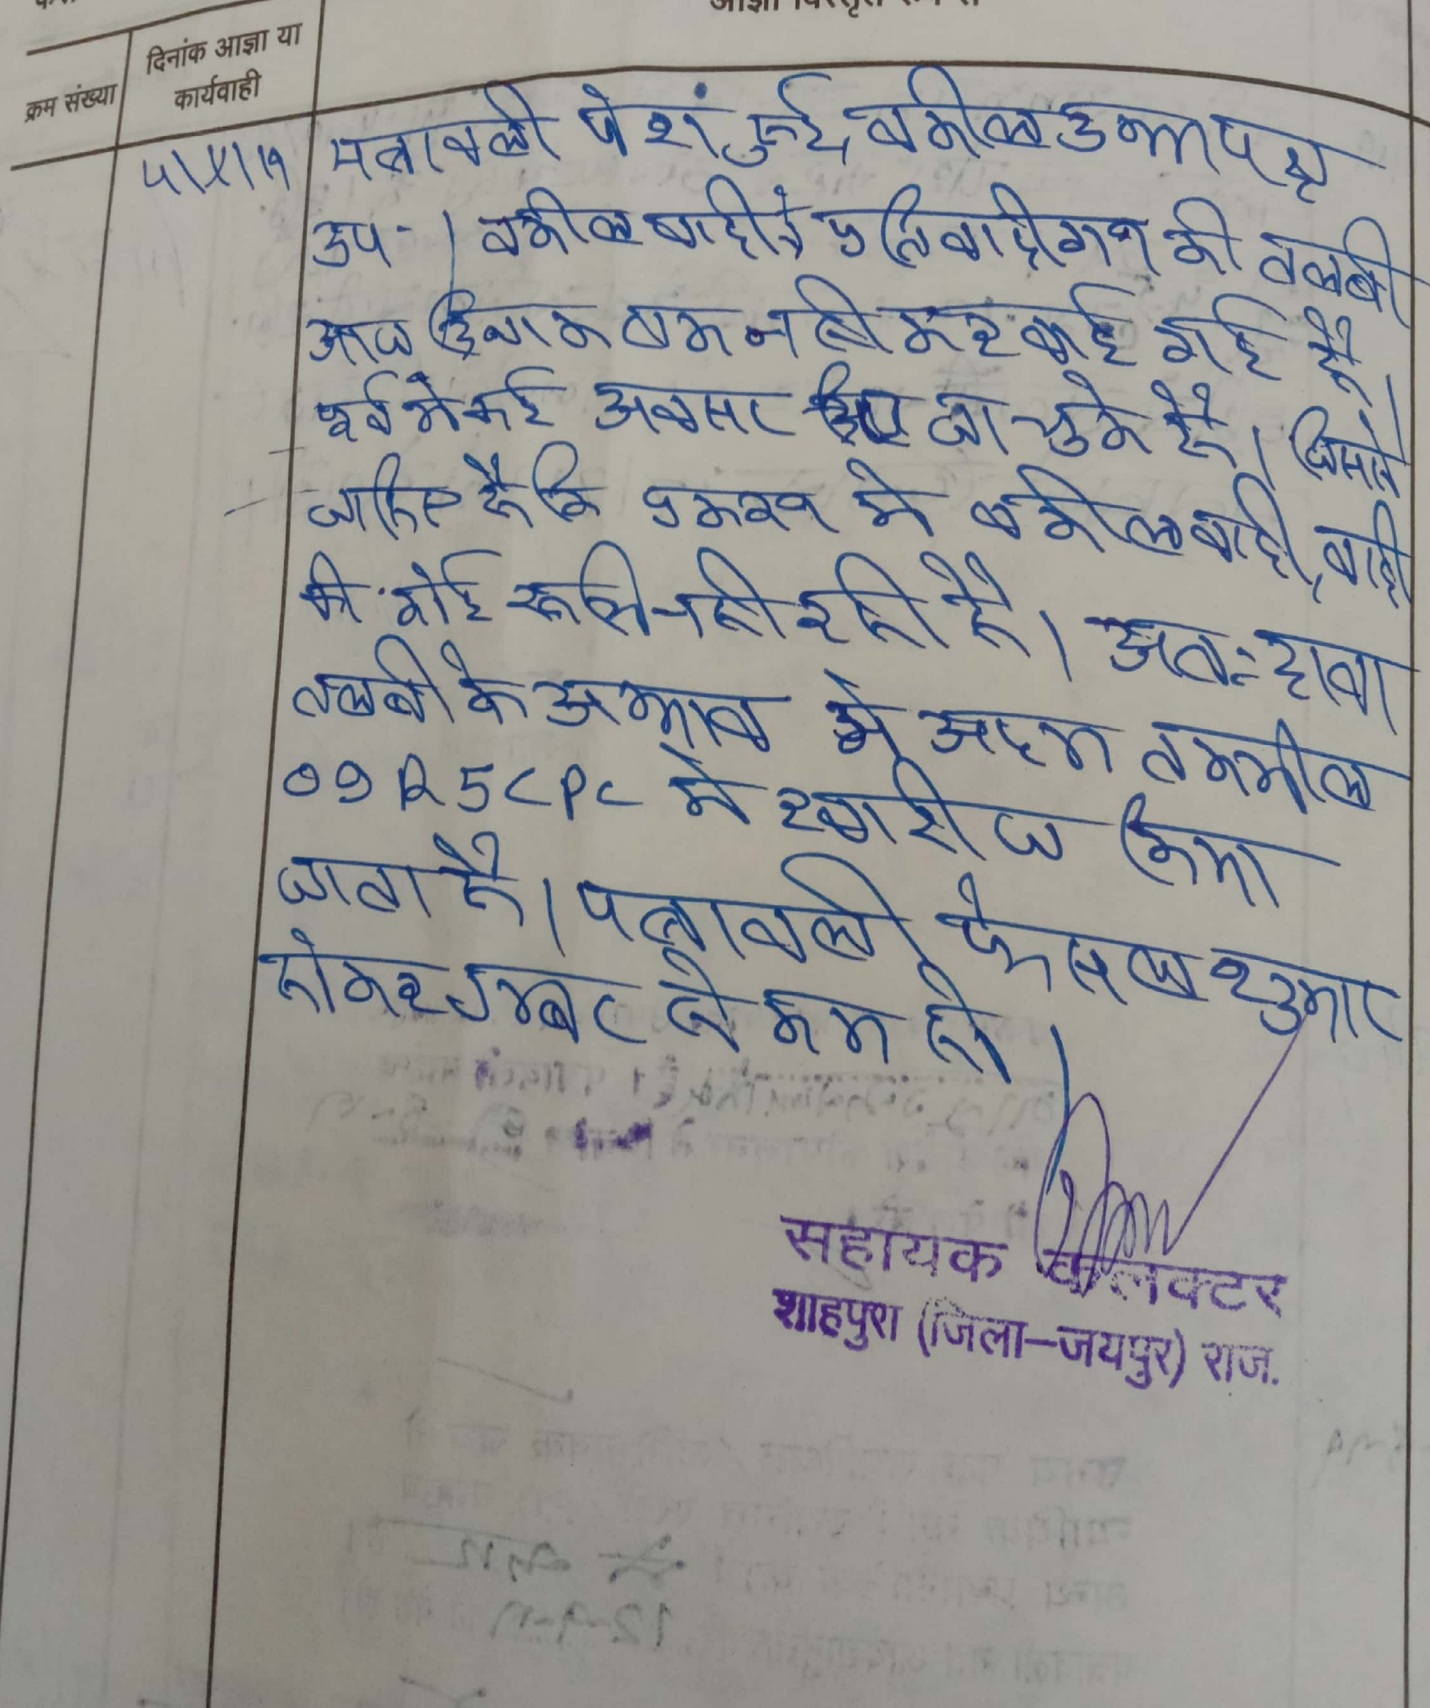 क्रम संख्या
दिनांक आज्ञा या
कार्यवाही
पत्रावली पेश हुई, वकील उभय पक्ष
उप.। वकील वादी ने प्रतिवादीगण की तलबी
आज दिनांक तक नही करवाई गई है।
पूर्व मे कई अवसर दिए जा चुके है। जिससे
जाहिर है कि प्रकरण मे वकील वादी, वादी
की कोई रूचि नही रही है। अतः दावा
तलबी के अभाव मे अदम तकमील
O9 R5 CPC मे खारीज किया
जाता है। पत्रावली फैसल शुमार
होकर नम्बर से कम हो।
सहायक कलक्टर
शाहपुरा (जिला-जयपुर) राज.
12-9-17